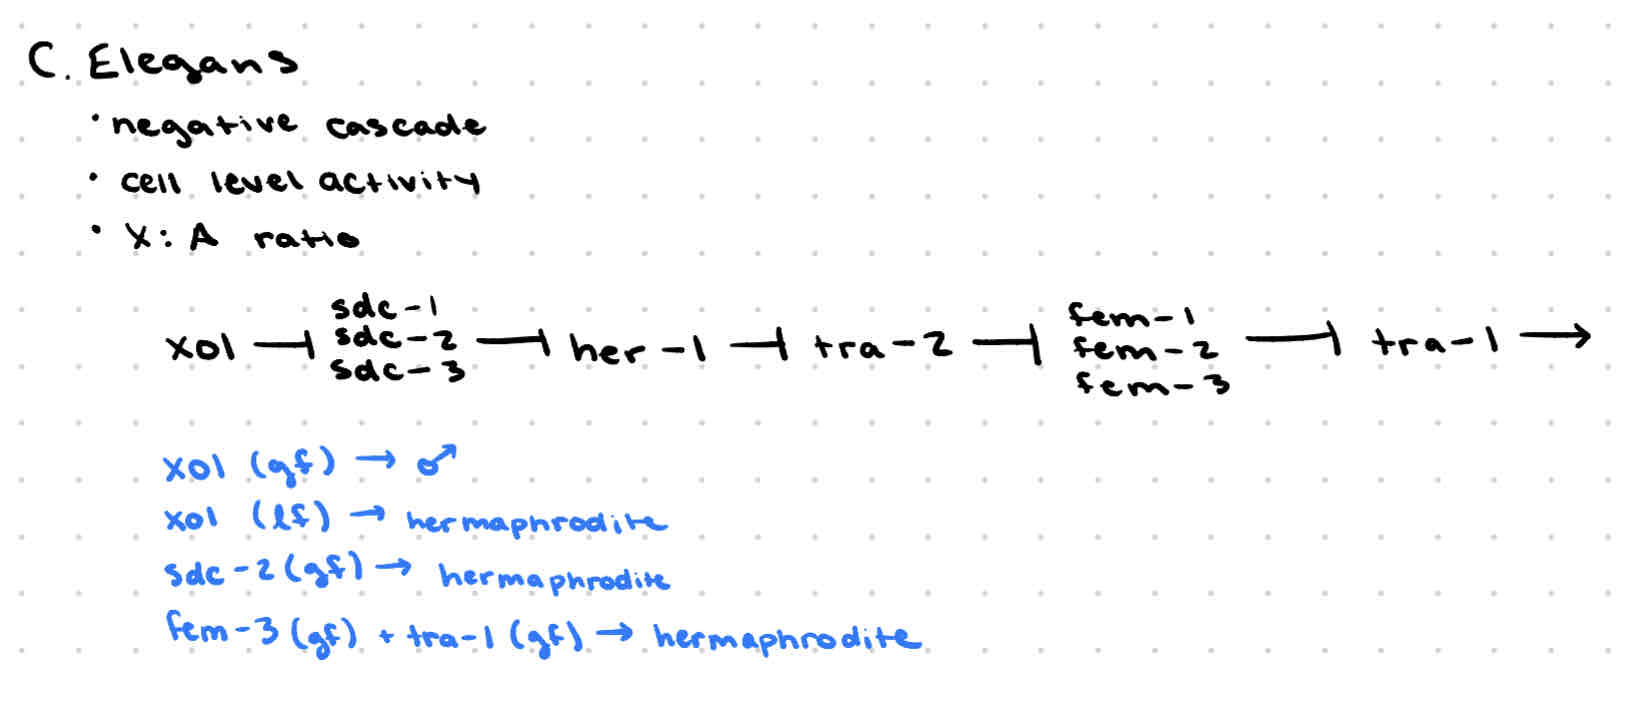 C. Elegans
· negative cascade
· cell level activity
· X:A ratio
xol ⊣ sdc-1 sdc-2 sdc-3 ⊣ her-1 ⊣ tra-2 ⊣ fem-1 fem-2 fem-3 ⊣ tra-1 →
xol (gf) → ♂
xol (lf) → hermaphrodite
sdc-2 (gf) → hermaphrodite
fem-3 (gf) + tra-1 (gf) → hermaphrodite